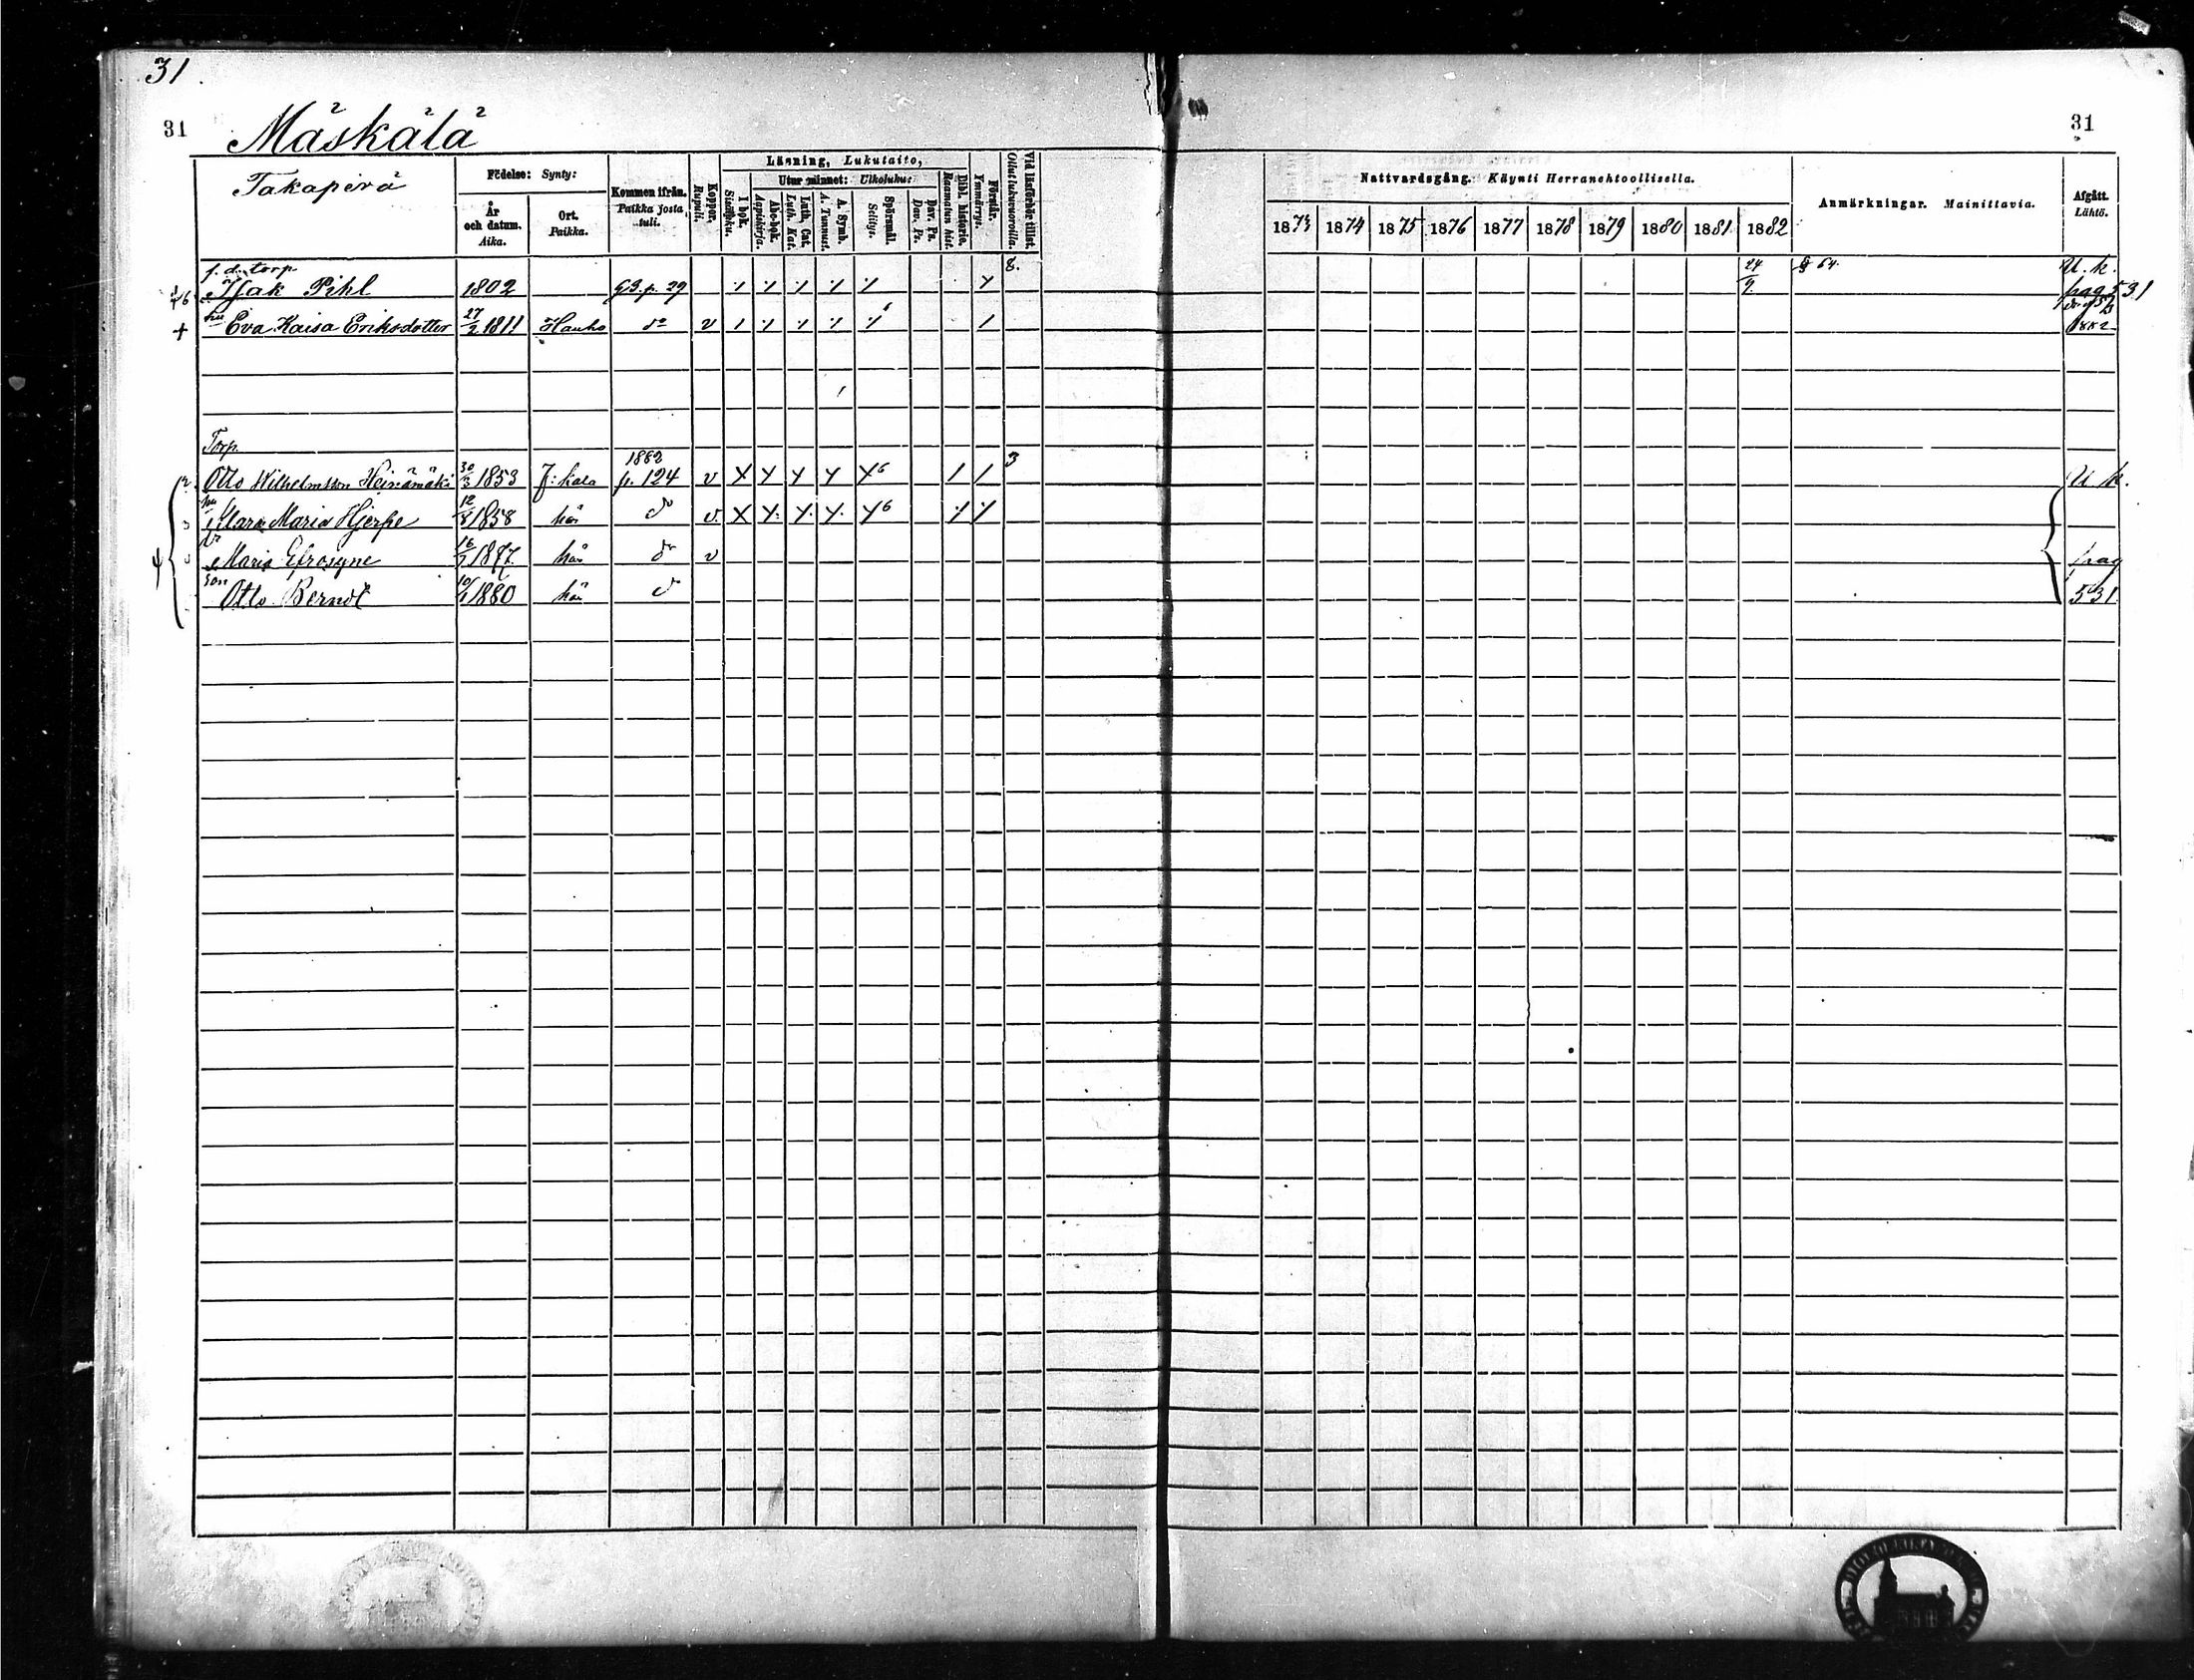 31
31
31
Mäskälä
Takaperä
Födelse: Synty:
År och datum. Aika.
Ort. Paikka.
Kommen ifrån. Paikka josta tuli.
Koppor. Rupuli.
Läsning, Lukutaito,
I bok. Sisäluku.
Utur minnet: Ulkoluku:
Abc-bok. Aapiskirja.
Luth. Cat. Luth. Kat.
A. Symb. A. Tunnust.
Spörsmål. Selitys.
Dav. Ps. Dav. Ps.
Bibl. historie. Raamatun hist.
Förstår. Ymmärrys.
Vid läsförhör tillst. Ollut lukuvuoroilla.
Nattvardsgång. Käynti Herranehtoollisella.
1873 1874 1875 1876 1877 1878 1879 1880 1881 1882
Anmärkningar. Mainittavia.
Afgått. Lähtö.
f. d. torp. 8. 24/9 § 64. U. k.
Isak Pihl 1802 G.B. p. 29 pag 531
hu Eva Kaisa Eriksdotter 27/2 1811 Hauho do v 1882
Torp. 1882 3
Otto Wilhelmsson Heinämäki 30/3 1853 J:kala p. 124 v U. k.
hu Klara Maria Hjerpe 12/8 1858 här do v.
dr Maria Efrosyne 16/7 1877 här do v pag
son Otto Berndt 10/1 1880 här do 531